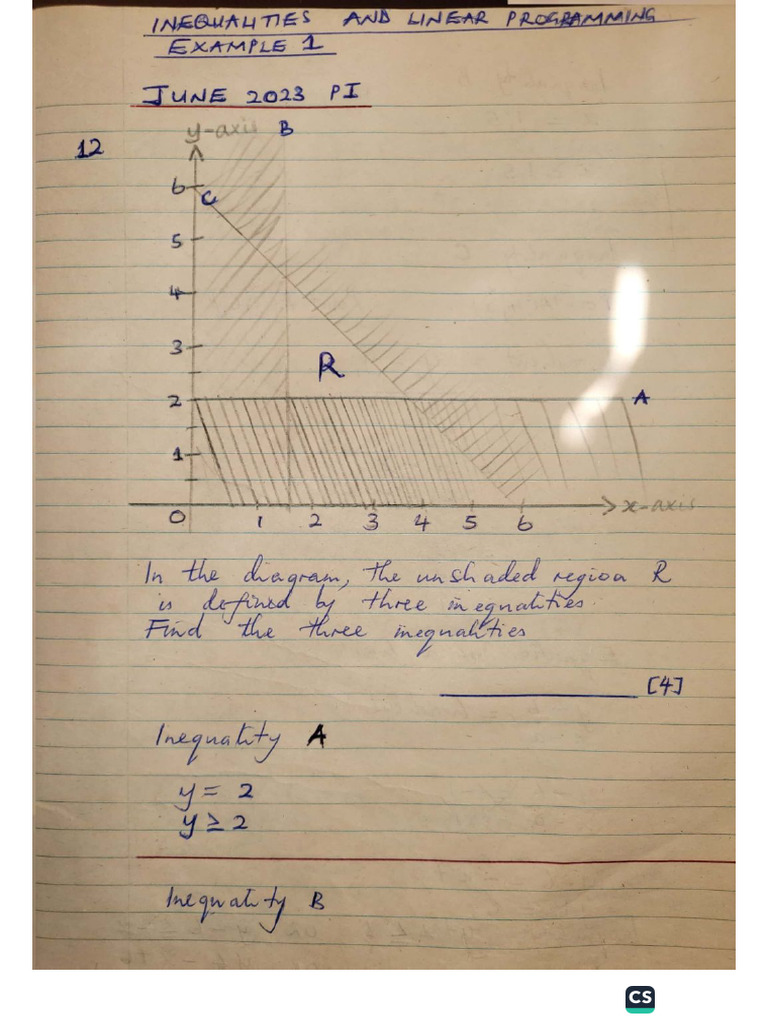 INEQUALITIES AND LINEAR PROGRAMMING
EXAMPLE 1
JUNE 2023 PI
12
y-axis B
6
C
5
4
3
R
2
A
1
0 1 2 3 4 5 6 x-axis
In the diagram, the unshaded region R
is defined by three inequalities.
Find the three inequalities
[4]
Inequality A
y = 2
y ≥ 2
Inequality B
CS